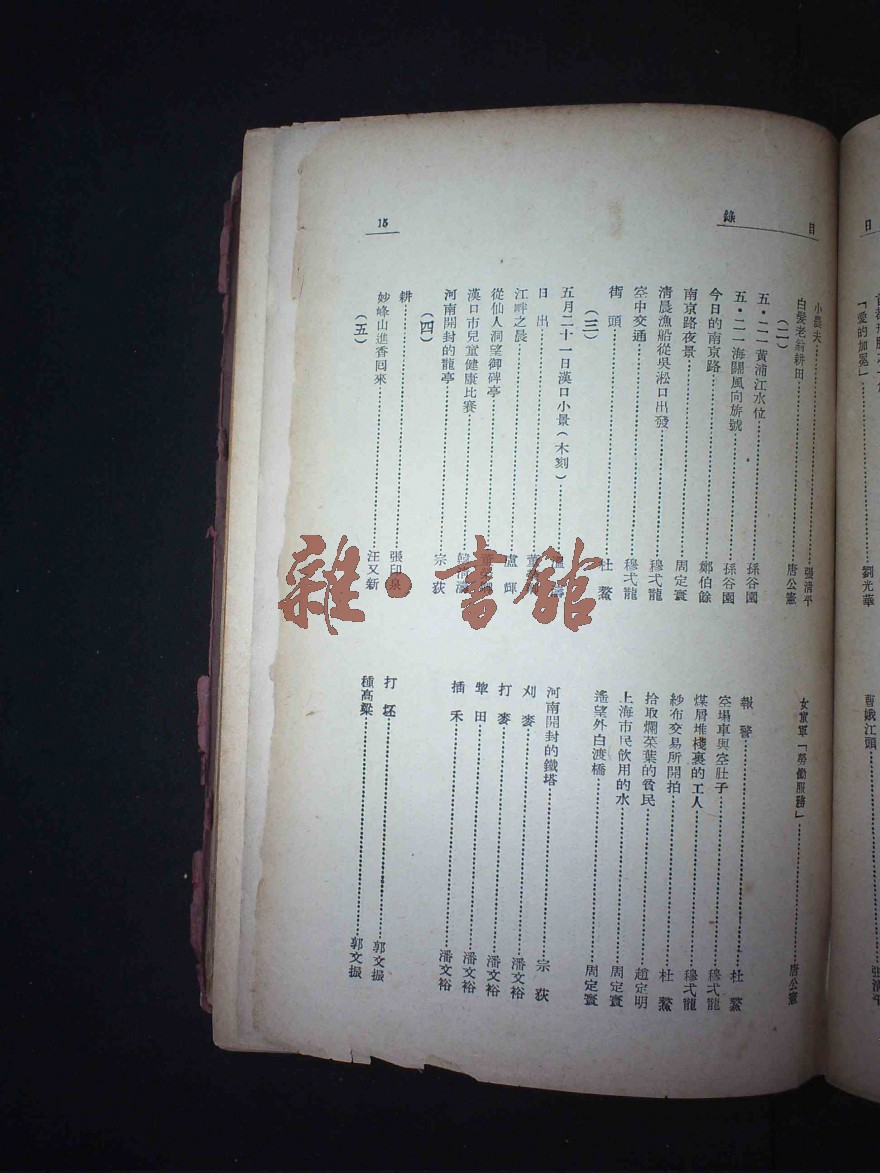 目錄
15
小農夫……張清平
白髮老翁耕田……唐公憲
(二)
五·二一黃浦江水位……孫谷園
五·二一海關風向旂號……孫谷園
今日的南京路……鄭伯餘
南京路夜景……周定寰
清晨漁船從吳淞口出發……穆弌龍
空中交通……穆弌龍
街頭……杜鰲
(三)
五月二十一日漢口小景(木刻)
日出
江畔之晨……盧輝
從仙人洞望御碑亭
漢口市兒童健康比賽
河南開封的龍亭……宗荻
(四)
耕……張印泉
妙峰山進香回來……汪又新
(五)
女童軍「勞働服務」……唐公憲
報警……杜鰲
空場車與空肚子……穆弌龍
煤屑堆棧裏的工人……穆弌龍
紗布交易所開拍……杜鰲
拾取爛菜葉的貧民……趙定明
上海市民飲用的水……周定寰
遙望外白渡橋……周定寰
河南開封的鐵塔……宗荻
刈麥……潘文裕
打麥……潘文裕
犂田……潘文裕
插禾……潘文裕
打坯……郭文振
種高粱……郭文振
「愛的加冕」……劉光華
曹娥江頭
雜·書館